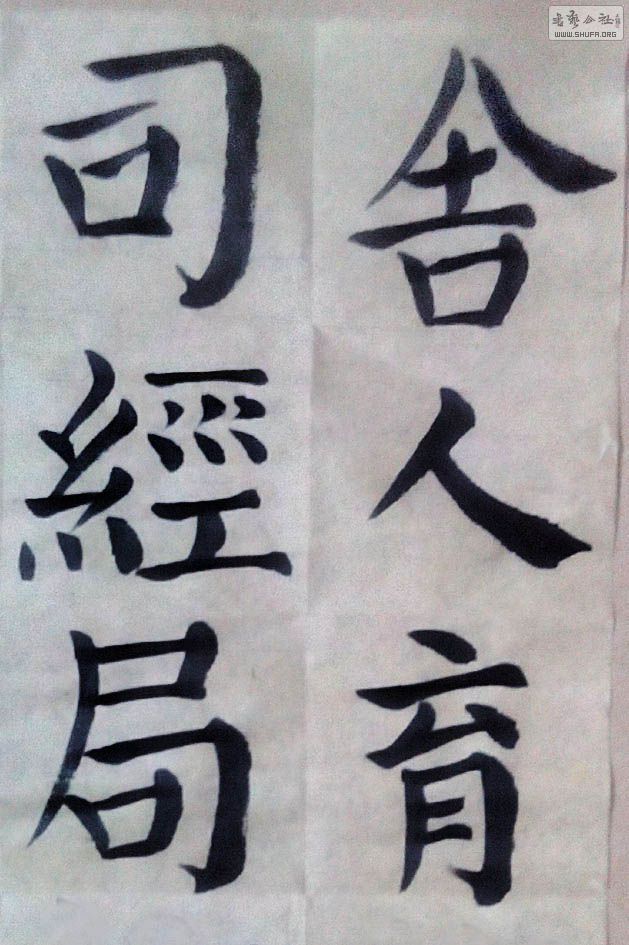 舍人育
司經局
書藝公社
WWW.SHUFA.ORG